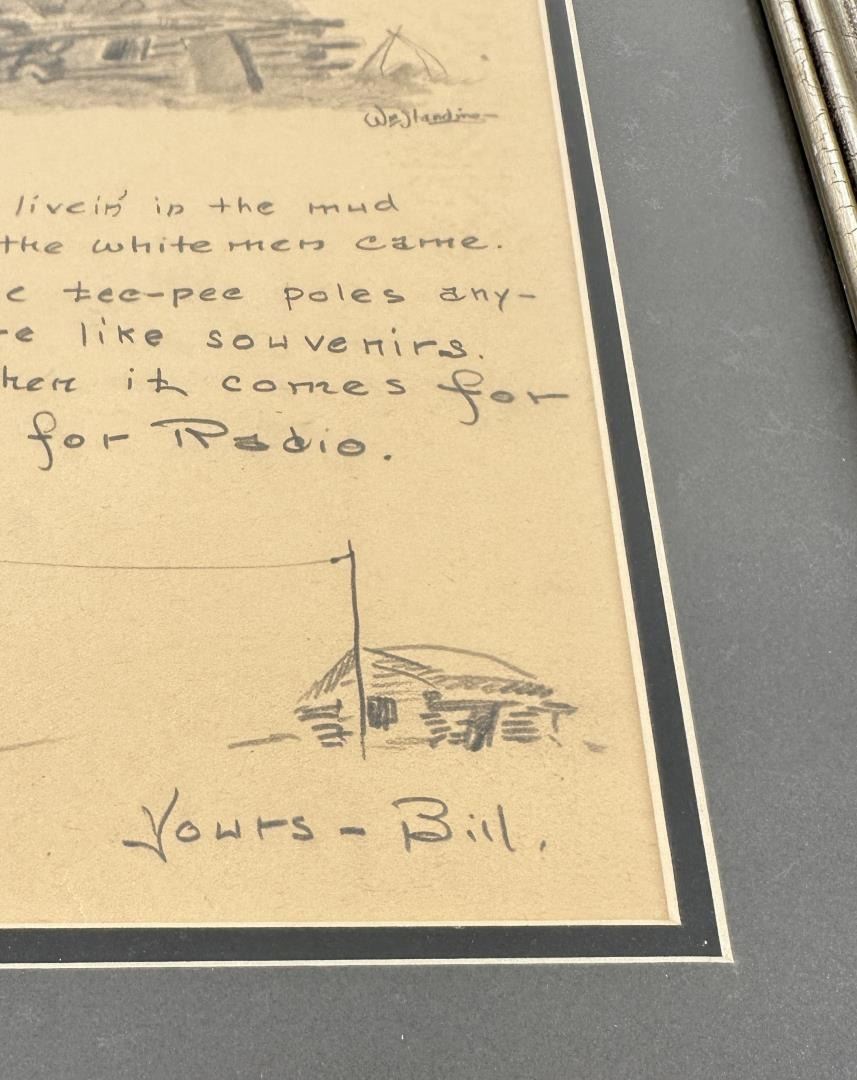 Wm Standing
livein' in the mud
the white men came.
tee-pee poles any-
like souvenirs.
it comes for
for Radio.
Yours - Bill.